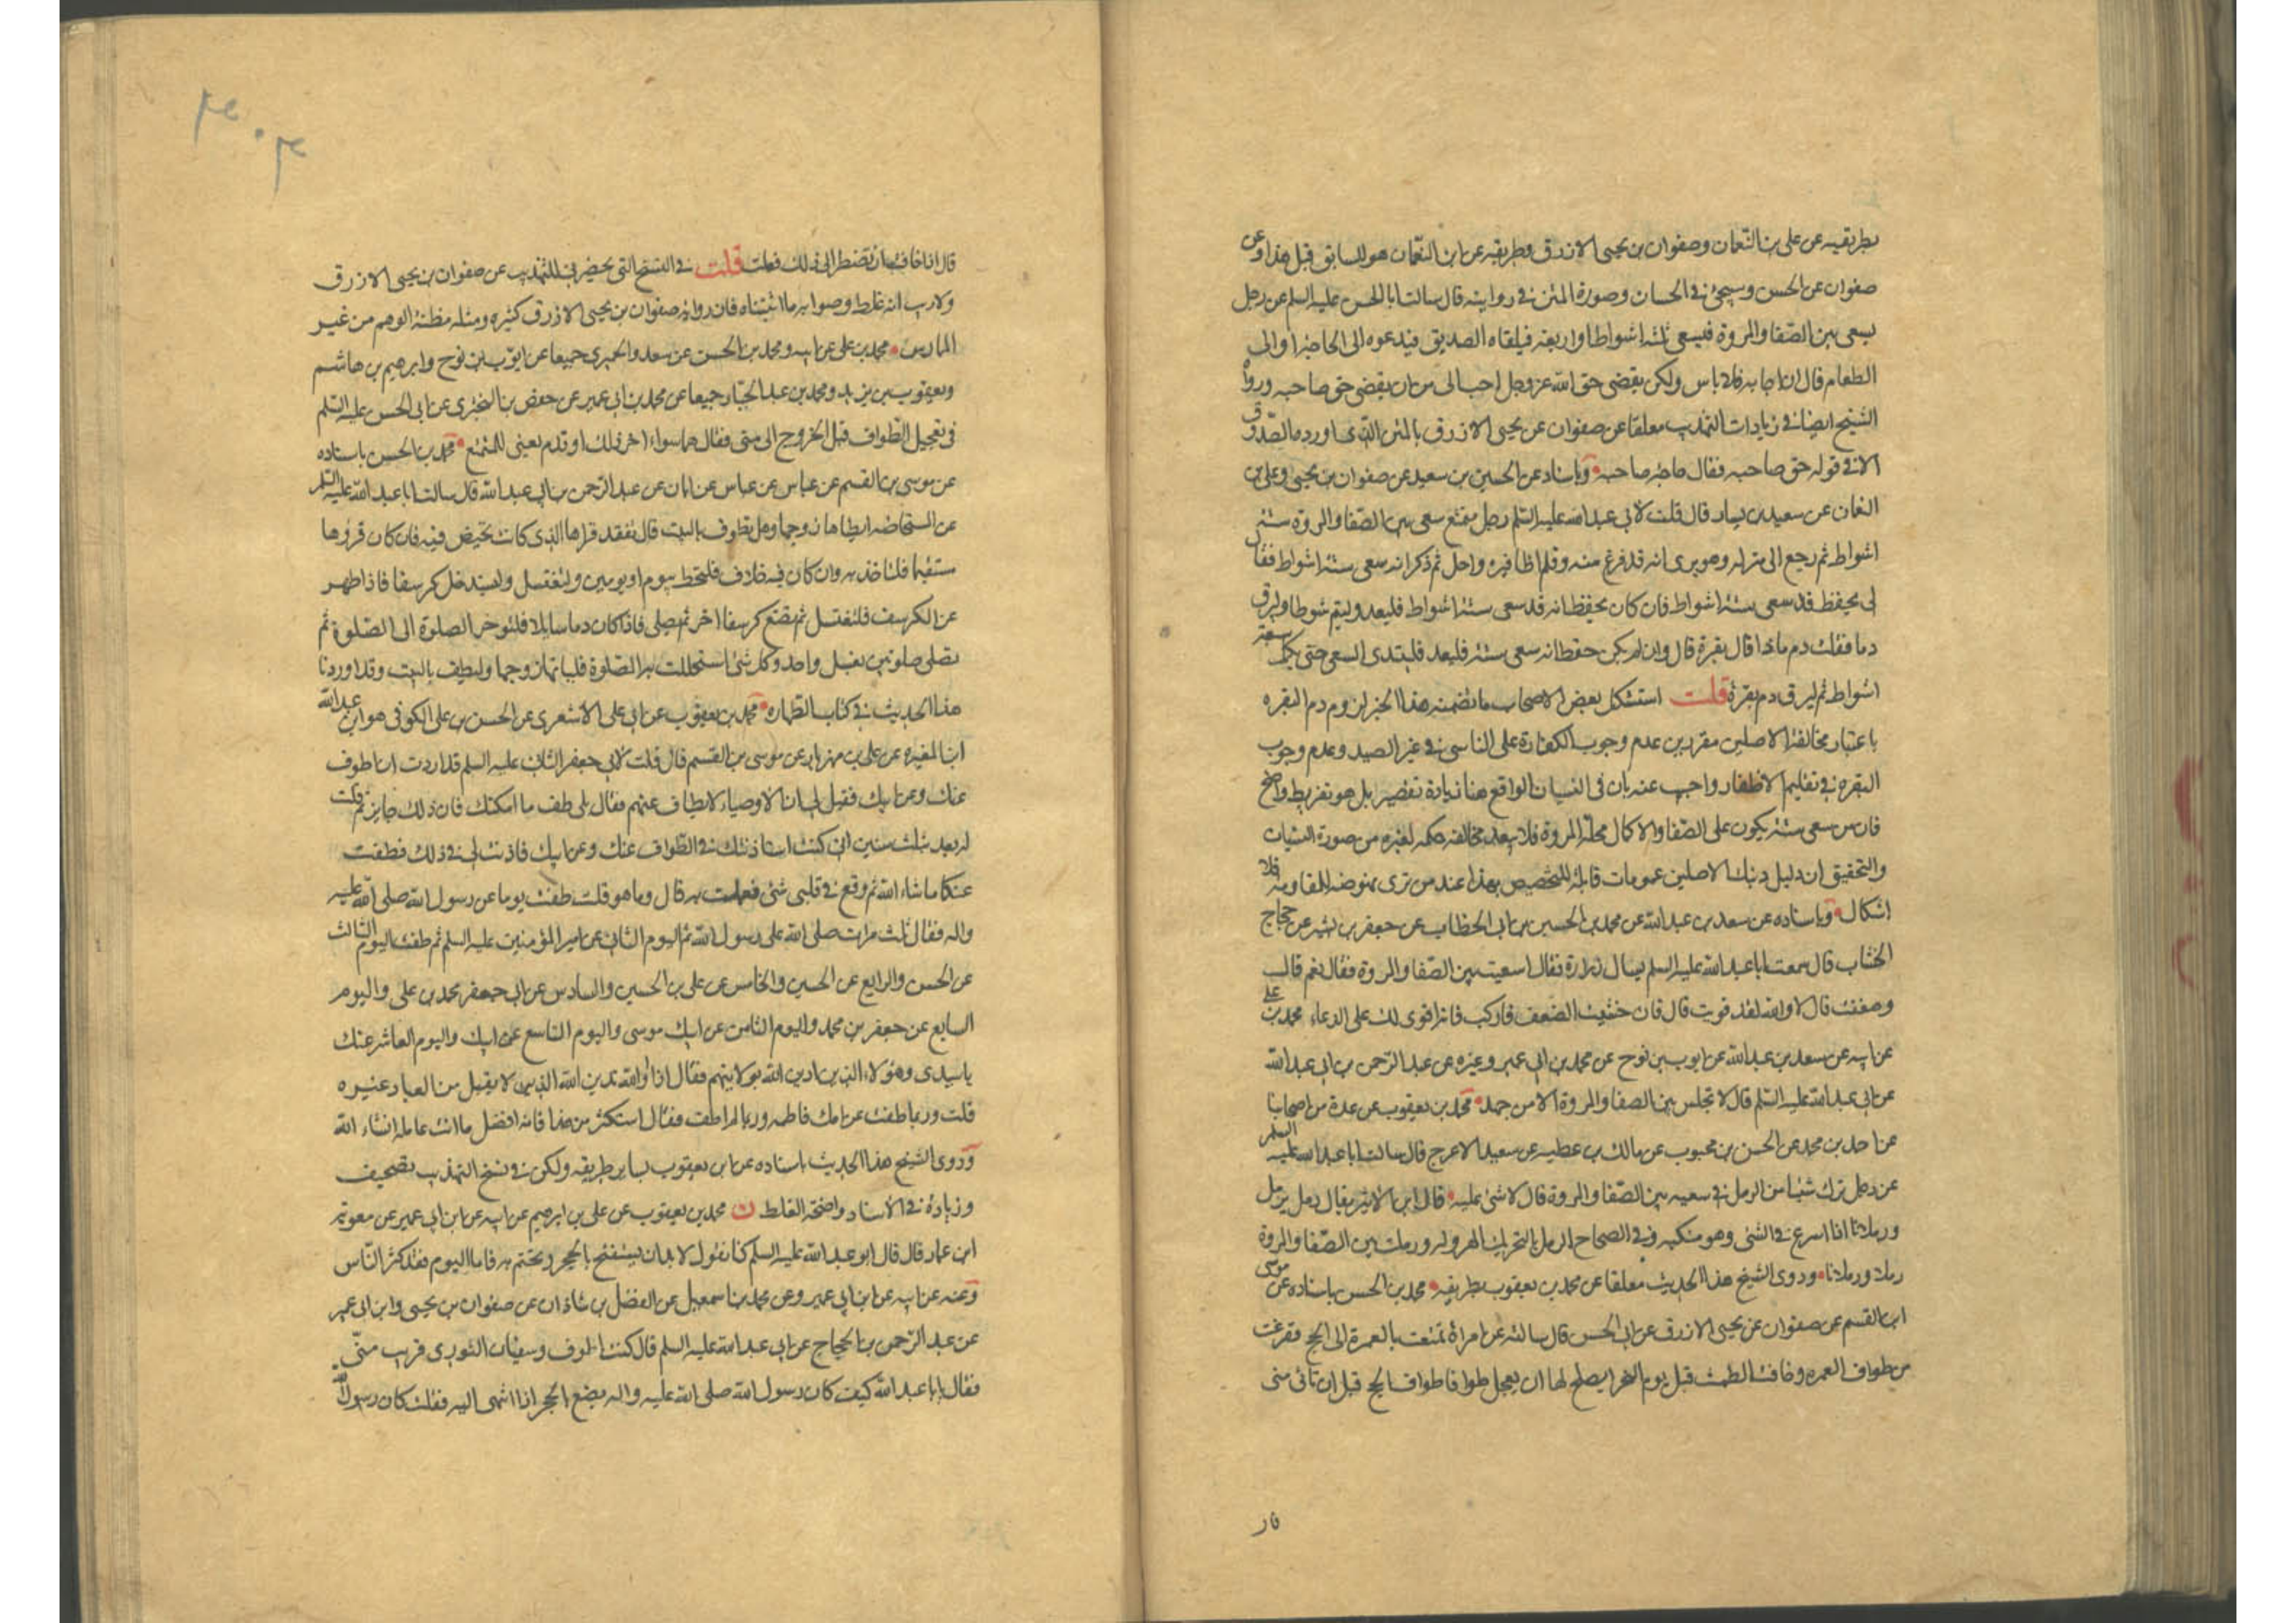 بطريقيه عن علي بن النعمان وصفوان بن يحيى الازرق وطريقه عن ابن النعمان هو السابق قبل هذا وعن
صفوان عن الحسن وسيجئ في الحسان وصورة المتن في روايته قال سالت ابا الحسن عليه السلم عن رجل
يسعى بين الصفا والمروة فيسعى ثلثة اشواط او اربعة فيلقاه الصديق فيدعوه الى الحاجة او الى
الطعام قال ان اجابه فلا باس ولكن يقضي حق الله عز وجل احب الى من ان يقضي حق صاحبه ورواه
الشيخ ايضا في زيادات التهذيب معلقا عن صفوان عن يحيى الازرق بالمتن الذي اورده الصدوق
الا في قوله حق صاحبه فقال حاجة صاحبه وباسناده عن الحسين بن سعيد عن صفوان بن يحيى وعلي بن
النعمان عن سعيد بن يسار قال قلت لابي عبد الله عليه السلم رجل متمتع سعى بين الصفا والمروة ستة
اشواط ثم رجع الى منزله وهو يرى انه قد فرغ منه وقلم اظافيره واحل ثم ذكر انه سعى ستة اشواط فقال
لي يحفظ قد سعى ستة اشواط فان كان يحفظ انه قد سعى ستة اشواط فليعد وليتم شوطا وليرق
دما فقلت دم ماذا قال بقرة قال وان لم يكن حفظ انه سعى ستة فليعد فليبتدى السعى حتى يكمل سبعة
اشواط ثم ليرق دم بقرة قلت استشكل بعض الاصحاب ما تضمنه هذا الخبر لزوم دم البقرة
باعتبار مخالفة الاصلين مقررين عدم وجوب الكفارة على الناسي في غير الصيد وعدم وجوب
البقرة في تقليم الاظفار واجيب عنه بان في النسيان الواقع هنا زيادة تقصير بل هو تفريط واضح
فان من سعى ستة يكون على الصفا والاكمال محله المروة فلا يبعد مخالفة حكمه لغيره من صورة النسيان
والتحقيق ان دليل دينك الاصلين عمومات قابلة للتخصيص بهذا عند من ترى نهوضه للمقاومة فلا
اشكال وباسناده عن سعد بن عبد الله عن محمد بن الحسين بن ابي الخطاب عن جعفر بن بشير عن حجاج
الخشاب قال سمعت ابا عبد الله عليه السلم يسال زرارة فقال اسعيت بين الصفا والمروة فقال نعم قال
وضعفت قال لا والله لقد قويت قال فان خشيت الضعف فاركب فانه اقوى لك على الدعاء محمد بن علي
عن ابيه عن سعد بن عبد الله عن ايوب بن نوح عن محمد بن ابي عمير وغيره عن عبد الرحمن بن ابي عبد الله
عن ابي عبد الله عليه السلم قال لا تجلس بين الصفا والمروة الا من جهد محمد بن يعقوب عن عدة من اصحابنا
عن احمد بن محمد عن الحسن بن محبوب عن مالك بن عطيه عن سعيد الاعرج قال سالت ابا عبد الله عليه السلم
عن رجل ترك شيئا من الرمل في سعيه بين الصفا والمروة قال لا شئ عليه قال ابن الاثير يقال رمل يرمل
ورملانا اذا اسرع في المشي وهز منكبيه وفي الصحاح الرمل بالتحريك الهرولة ورملت بين الصفا والمروة
رملا ورملانا وروى الشيخ هذا الحديث معلقا عن محمد بن يعقوب بطريقه محمد بن الحسن باسناده عن موسى
ابن القسم عن صفوان عن يحيى الازرق عن ابي الحسن قال سالته عن امراة تمتعت بالعمرة الى الحج ففرغت
من طواف العمرة وخافت الطمث قبل يوم النحر ايصلح لها ان يعجل طوافها طواف الحج قبل ان تاتى منى
قال
قال اذا خافت ان تضطر الى ذلك فعلت قلت في النسخ التي يحضرني للتهذيب عن صفوان بن يحيى الازرق
ولا ريب انه غلط وصوابه ما اثبتناه فان رواية صفوان بن يحيى الازرق كثيره ومثله مظنة الوهم من غير
الممارس محمد بن علي عن ابيه ومحمد بن الحسن عن سعد والحميري جميعا عن ايوب بن نوح وابرهيم بن هاشم
ويعقوب بن يزيد ومحمد بن عبد الجبار جميعا عن محمد بن ابي عمير عن حفص بن البختري عن ابي الحسن عليه السلم
في تعجيل الطواف قبل الخروج الى منى فقال هما سواء اخر ذلك او قدم يعني للمتمتع محمد بن الحسن باسناده
عن موسى بن القسم عن عباس عن عباس عن ابان عن عبد الرحمن بن ابي عبد الله قال سالت ابا عبد الله عليه السلم
عن المستحاضه ايطاها زوجها وهل تطوف بالبيت قال تقعد قراها الذي كانت تحيض فيه فان كان قرؤها
مستقيما فلتاخذ به وان كان فيه خلاف فلتحتط بيوم او يومين ولتغتسل ولتستدخل كرسفا فاذا ظهر
عن الكرسف فلتغتسل ثم تضع كرسفا اخر ثم تصلي فاذا كان دما سايلا فلتوخر الصلوة الى الصلوة ثم
تصلي صلوتين بغسل واحد وكل شئ استحللت به الصلوة فلياتها زوجها ولتطف بالبيت وقد اوردنا
هذا الحديث في كتاب الطهاره محمد بن يعقوب عن ابي علي الاشعري عن الحسن بن علي الكوفي هو ابن عبد الله
ابن المغيره عن علي بن مهزيار عن موسى بن القسم قال قلت لابي جعفر الثاني عليه السلم قد اردت ان اطوف
عنك وعن ابيك فقيل لي ان الاوصياء لا يطاف عنهم فقال بلى طف ما امكنك فان ذلك جايز ثم قلت
له بعد بثلث سنين اني كنت استاذنتك في الطواف عنك وعن ابيك فاذنت لي في ذلك فطفت
عنكما ما شاء الله ثم وقع في قلبي شئ فعملت به قال وما هو قلت طفت يوما عن رسول الله صلى الله عليه
واله فقال ثلث مرات صلى الله على رسول الله ثم اليوم الثاني عن امير المؤمنين عليه السلم ثم طفت اليوم الثالث
عن الحسن والرابع عن الحسين والخامس عن علي بن الحسين والسادس عن ابي جعفر محمد بن علي واليوم
السابع عن جعفر بن محمد واليوم الثامن عن ابيك موسى واليوم التاسع عن ابيك واليوم العاشر عنك
يا سيدي وهؤلاء الذين ادين الله بولايتهم فقال اذا والله تدين الله الدين لا يقبل من العباد غيره
قلت وربما طفت عن امك فاطمه وربما لم اطف فقال استكثر من هذا فانه افضل ما انت عامله انشاء الله
وروى الشيخ هذا الحديث باسناده عن ابن يعقوب بساير طريقه ولكن في نسخ التهذيب تصحيف
وزيادة في الاسناد واضحة الغلط ن محمد بن يعقوب عن علي بن ابرهيم عن ابيه عن ابن ابي عمير عن معويه
ابن عمار قال قال ابو عبد الله عليه السلم كنا نقول لا بد ان يستفتح بالحجر ويختم به فاما اليوم فقد كثر الناس
وعنه عن ابيه عن ابن ابي عمير وعن محمد بن اسمعيل عن الفضل بن شاذان عن صفوان بن يحيى وابن ابي عمير
عن عبد الرحمن بن الحجاج عن ابي عبد الله عليه السلم قال كنت اطوف وسفيان الثوري قريب مني
فقال يا ابا عبد الله كيف كان رسول الله صلى الله عليه واله يصنع بالحجر اذا انتهى اليه فقلت كان رسول الله